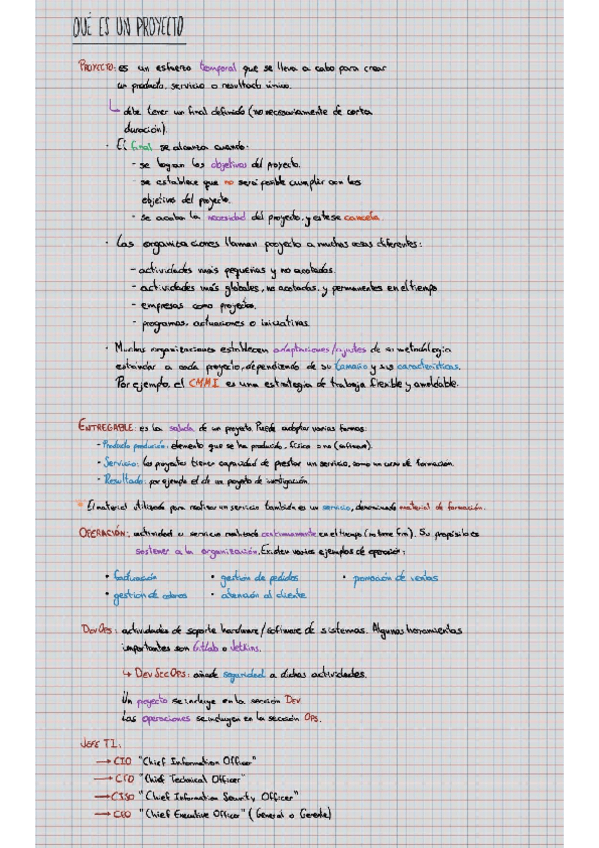 QUÉ ES UN PROYECTO
PROYECTO: es un esfuerzo temporal que se lleva a cabo para crear
un producto, servicio o resultado único.
debe tener un final definido (no necesariamente de corta
duración).
· El final se alcanza cuando:
- se logran los objetivos del proyecto.
- se establece que no será posible cumplir con los
objetivos del proyecto.
- se acaba la necesidad del proyecto, y este se cancela.
· Las organizaciones llaman proyecto a muchas cosas diferentes:
- actividades más pequeñas y no acotadas.
- actividades más globales, no acotadas, y permanentes en el tiempo
- empresas como proyectos.
- programas, actuaciones o iniciativas.
· Muchas organizaciones establecen adaptaciones/ajustes de su metodología
estándar a cada proyecto, dependiendo de su tamaño y sus características.
Por ejemplo, el CMMI es una estrategia de trabajo flexible y amoldable.
ENTREGABLE: es la salida de un proyecto. Puede adoptar varias formas:
- Producto producción: elemento que se ha producido, físico o no (software).
- Servicio: los proyectos tienen capacidad de prestar un servicio, como un curso de formación.
- Resultado: por ejemplo el de un proyecto de investigación.
* El material utilizado para realizar un servicio también es un servicio, denominado material de formación.
OPERACIÓN: actividad o servicio realizado continuamente en el tiempo (no tiene fin). Su propósito es
sostener a la organización. Existen varios ejemplos de operación:
• facturación • gestión de pedidos • promoción de ventas
• gestión de cobros • atención al cliente
DevOps: actividades de soporte hardware/software de sistemas. Algunas herramientas
importantes son GitLab o Jenkins.
↳ DevSecOps: añade seguridad a dichas actividades.
Un proyecto se incluye en la sección Dev
Las operaciones se incluyen en la sección Ops.
JEFE TI:
→ CIO "Chief Information Officer"
→ CTO "Chief Technical Officer"
→ CISO "Chief Information Security Officer"
→ CEO "Chief Executive Officer" (General o Gerente)